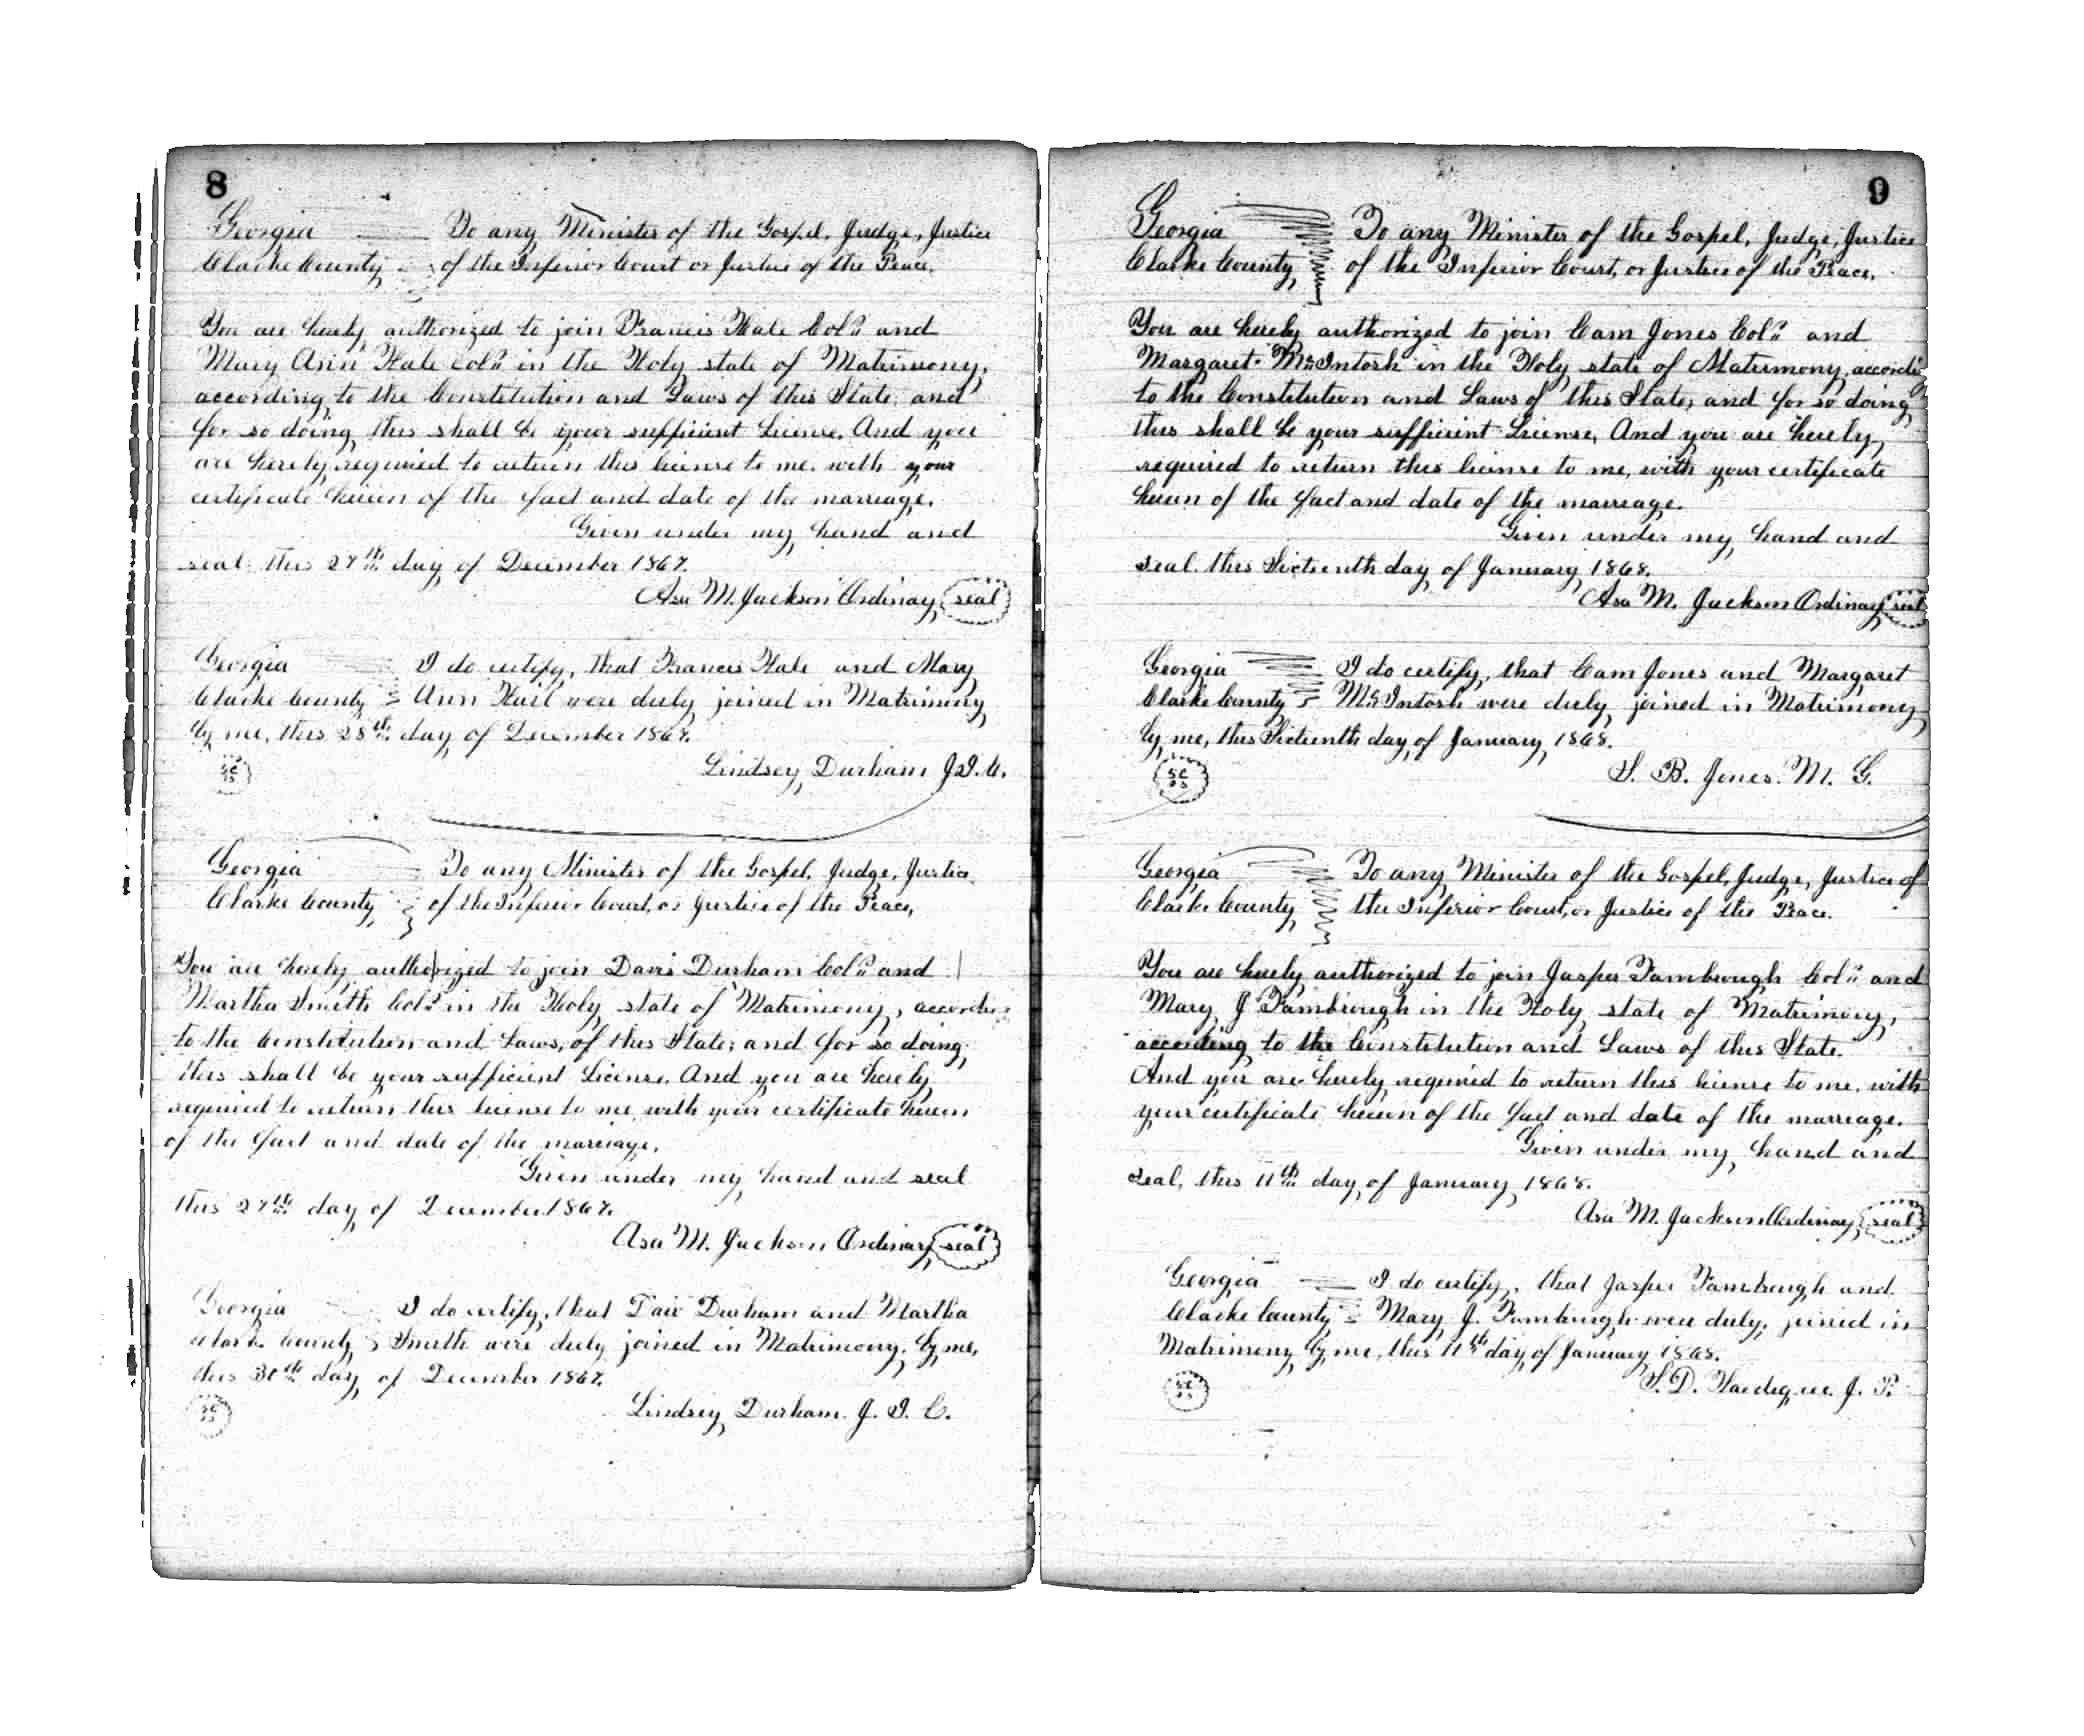 8
Georgia To any Minister of the Gospel, Judge, Justice
Clarke County of the Inferior Court or Justice of the Peace.
You are hereby authorized to join Francis Hale Cold and
Mary Ann Hale Cold in the Holy state of Matrimony,
according to the Constitution and Laws of this State; and
for so doing this shall be your sufficient License. And you
are hereby required to return this license to me, with your
certificate hereon of the fact and date of the marriage.
Given under my hand and
seal this 27th day of December 1867.
Asa M. Jackson Ordinary seal
Georgia I do certify, that Francis Hale and Mary
Clarke County Ann Hail were duly joined in Matrimony
by me, this 28th day of December 1867.
Lindsey Durham J.I.C.
Georgia To any Minister of the Gospel, Judge, Justice
Clarke County of the Inferior Court, or Justice of the Peace,
You are hereby authorized to join Davis Durham Cold and
Martha Smith Cold in the Holy state of Matrimony, according
to the Constitution and Laws, of this State; and for so doing,
this shall be your sufficient License. And you are hereby
required to return this license to me with your certificate hereon
of the fact and date of the marriage.
Given under my hand and seal
this 27th day of December 1867.
Asa M. Jackson Ordinary seal
Georgia I do certify, that Durham and Martha
Clark County Smith were duly joined in Matrimony, by me,
this 30th day of December 1867.
Lindsey Durham. J. I. C.
9
Georgia To any Minister of the Gospel, Judge, Justice
Clarke County, of the Inferior Court, or Justice of the Peace,
You are hereby authorized to join Cam Jones Cold and
Margaret McIntosh in the Holy state of Matrimony, according
to the Constitution and Laws of this State, and for so doing
this shall be your sufficient License, And you are hereby,
required to return this license to me, with your certificate
hereon of the fact and date of the marriage.
Given under my hand and
seal. this Sixteenth day of January 1868.
Asa M. Jackson Ordinary seal
Georgia I do certify, that Cam Jones and Margaret
Clarke County McIntosh were duly joined in Matrimony
by me, this Sixteenth day of January 1868.
S. B. Jones. M. G.
Georgia To any Minister of the Gospel, Judge, Justice of
Clarke County the Inferior Court, or Justice of the Peace.
You are hereby authorized to join Jasper Fambrough Cold and
Mary J Fambrough in the Holy state of Matrimony,
according to the Constitution and Laws of this State.
And you are hereby required to return this license to me, with
your certificate hereon of the fact and date of the marriage.
Given under my hand and
seal, this 11th day of January 1868.
Asa M. Jackson Ordinary seal
Georgia I do certify, that Jasper Fambrough and
Clarke County Mary J. Fambrough were duly, joined in
Matrimony by me, this 11th day of January 1868.
S. D. J. P.